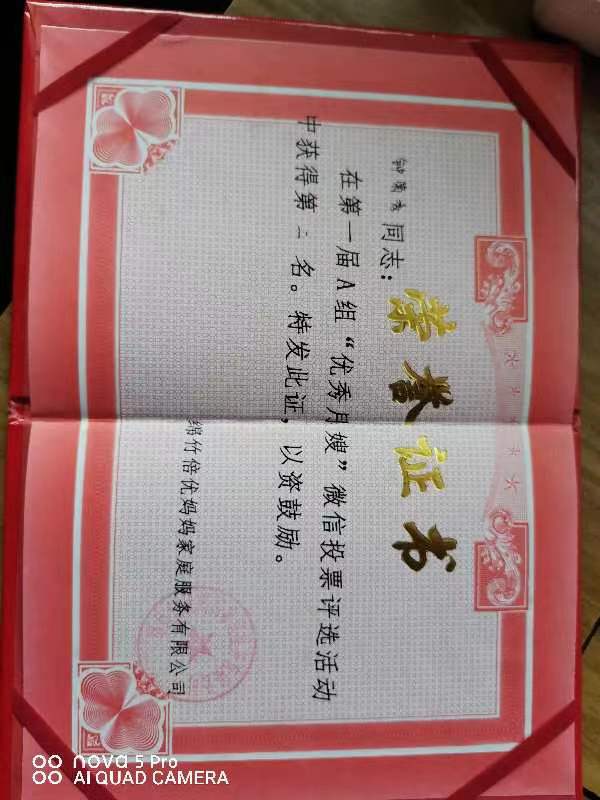 荣誉证书
同志：
在第一届A组“优秀月嫂”微信投票评选活动
中获得第二名。特发此证，以资鼓励。
绵竹倍优妈妈家庭服务有限公司
nova 5 Pro
AI QUAD CAMERA